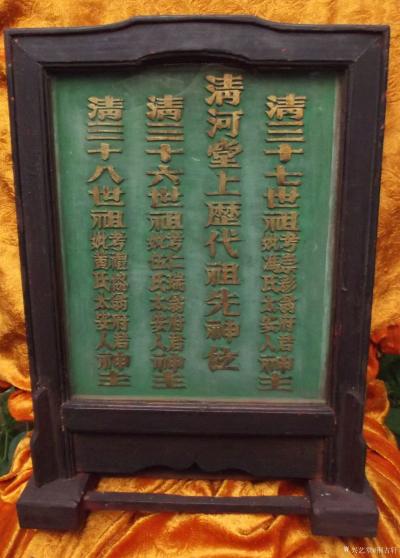 清三十七世祖
考崇彰翁府君
妣馮氏太安人
神主
清河堂上歷代祖先神位
清三十六世祖
考仁翁府君
妣伍氏太安人
神主
清三十八世祖
考禮翁府君
妣黃氏太安人
神主